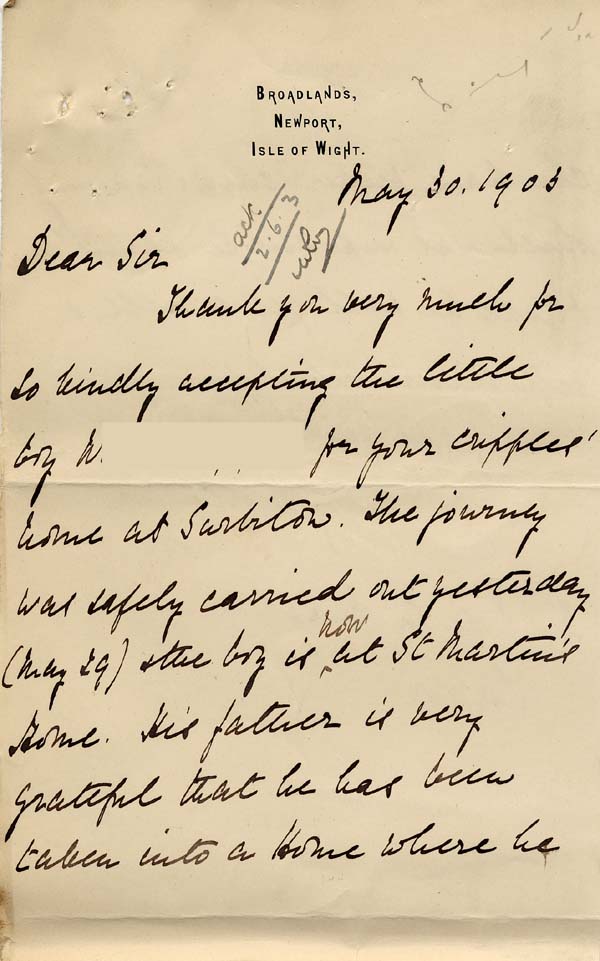 BROADLANDS,
NEWPORT,
ISLE OF WIGHT.
May 30. 1903
ack.
2.6.3
Dear Sir
Thank you very much for
so kindly accepting the little
boy W.
for your cripples'
home at Surbiton. The journey
was safely carried out yesterday
(May 29) & the boy is now at St Martin's
Home. His father is very
grateful that he has been
taken into a Home where he